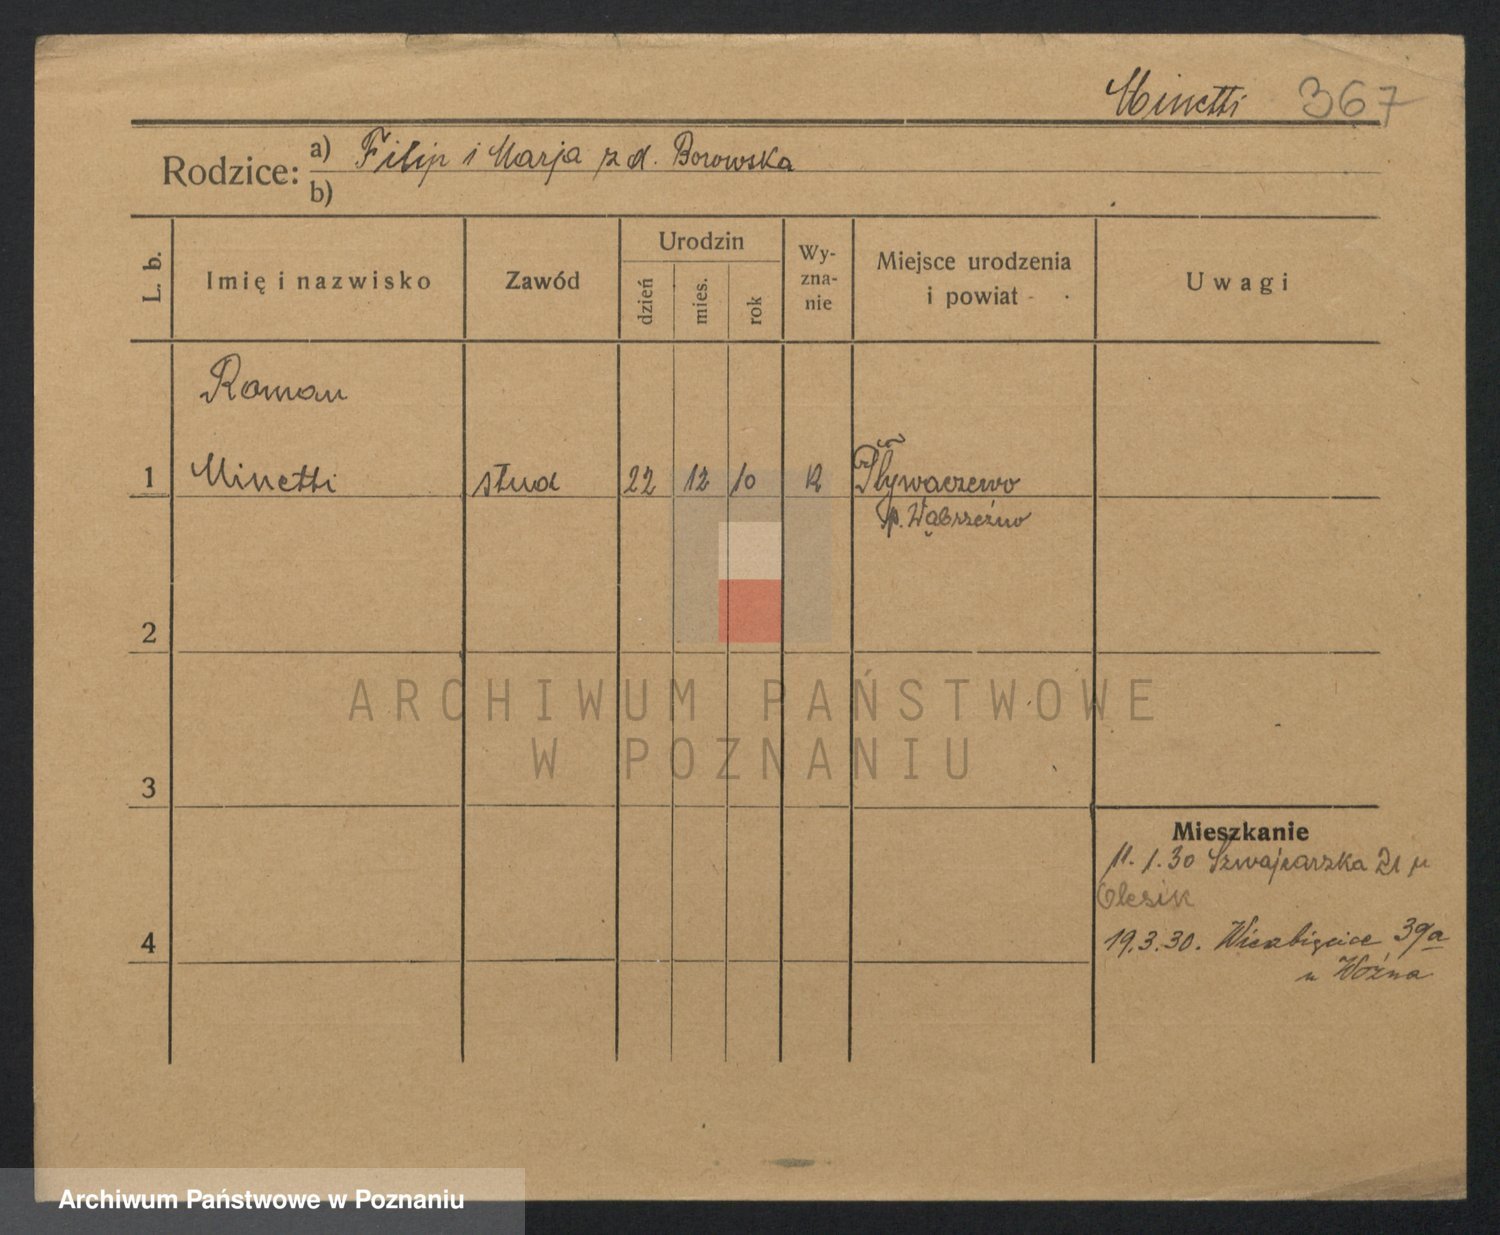 Minetti 367
Rodzice: a) Filip i Marja z d. Borowska
b)
L. b.
Imię i nazwisko
Zawód
Urodzin
dzień
mies.
rok
Wy-
zna-
nie
Miejsce urodzenia
i powiat
Uwagi
Roman
1 Minetti stud 22 12 10 R Pływaczewo
p. Wąbrzeźno
2
3
4
Mieszkanie
11.1.30 Szwajcarska 21 u
Olesik
19.3.30. Wierzbięcice 39a
u Woźna
ARCHIWUM PAŃSTWOWE
W POZNANIU
Archiwum Państwowe w Poznaniu